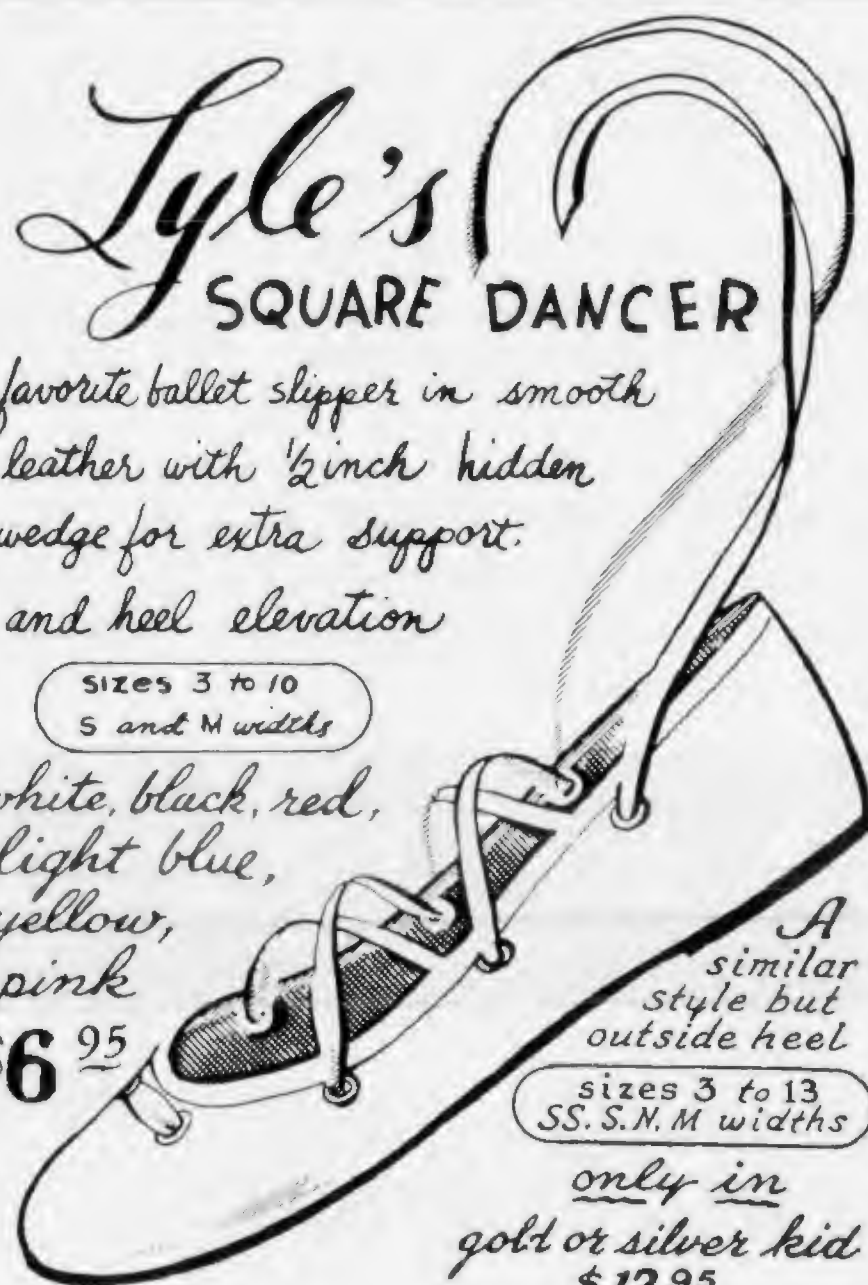 Lyle's
SQUARE DANCER
favorite ballet slipper in smooth
leather with ½ inch hidden
wedge for extra support.
and heel elevation
sizes 3 to 10
S and M widths
white, black, red,
light blue,
yellow,
pink
$6 95
A
similar
style but
outside heel
sizes 3 to 13
SS. S. N. M widths
only in
gold or silver kid
$12.95